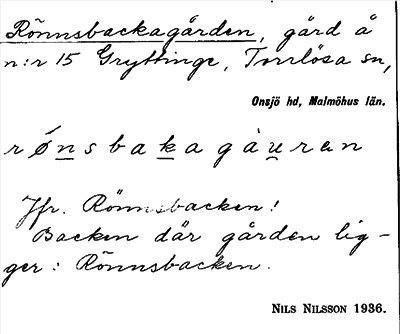 Rönnsbackagården, gård å
n:r 15 Gryttinge, Torrlösa sn,
Onsjö hd, Malmöhus län.
rǿnsbakagåuran
Jfr. Rönnsbacken!
Backen där gården lig-
ger: Rönnsbacken.
NILS NILSSON 1936.